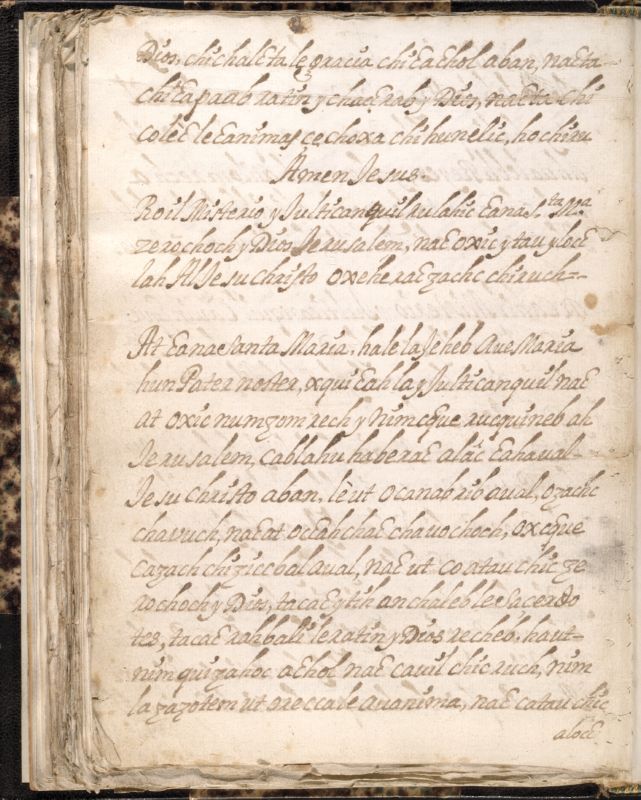 Dios, chi chalcta le gracia chi cachol aban, nacta
chi capaab ratin y chacrab y Dios, nacta chi
colec le canimas cechoxa chi hunelic, ho chiru
Amen Jesus.
Roil Misterio y Julticanquil rulahic cana S.ta M.a
ze rochoch y Dios Jerusalem, nac oxic y tau y loce
lah Al Jesu Christo oxeherac zachc chiruch.
At cana Santa Maria, hale la Jeheb Aue Maria
hun Pater noster, xquicah la y Julticanquil nac
at oxic numzom rech y nimcque rucquineb ah
Jerusalem, cablahu haberac alac cahaual
Jesu Christo aban, lèut ocanabrio aual, ozachc
chauuch, nacat occahchac chauochoch, oxcque
cazach chizicc bal aual, nac ut coatau chic ze
rochoch y Dios, tacac y tih anchaleb le Sacerdo
tes, tacac rahbali le ratin y Dios recheb, haut
nim quizahoc achol nac cauil chic ruch, nim
la zazotem ut reccale auanima, nac catau chic
aloce